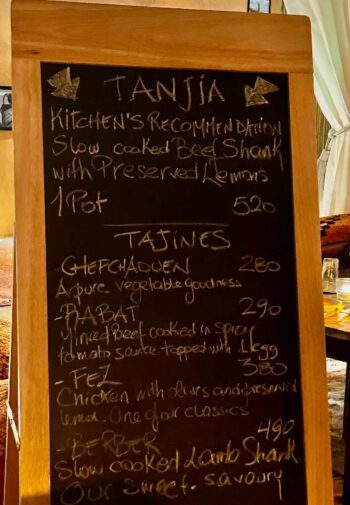 TANJIA
KITCHEN'S RECOMMENDATION
Slow cooked Beef Shank
with Preserved Lemons
1 Pot 520
TAJINES
- CHEFCHAOUEN 280
A pure vegetable goodness
- RABAT 290
Minced Beef cooked in spicy
tomato sauce topped with 1 egg
- FEZ 380
Chicken with olives and preserved
lemon. One of our classics
- BERBER 490
Slow cooked Lamb Shank.
Our sweet-savoury